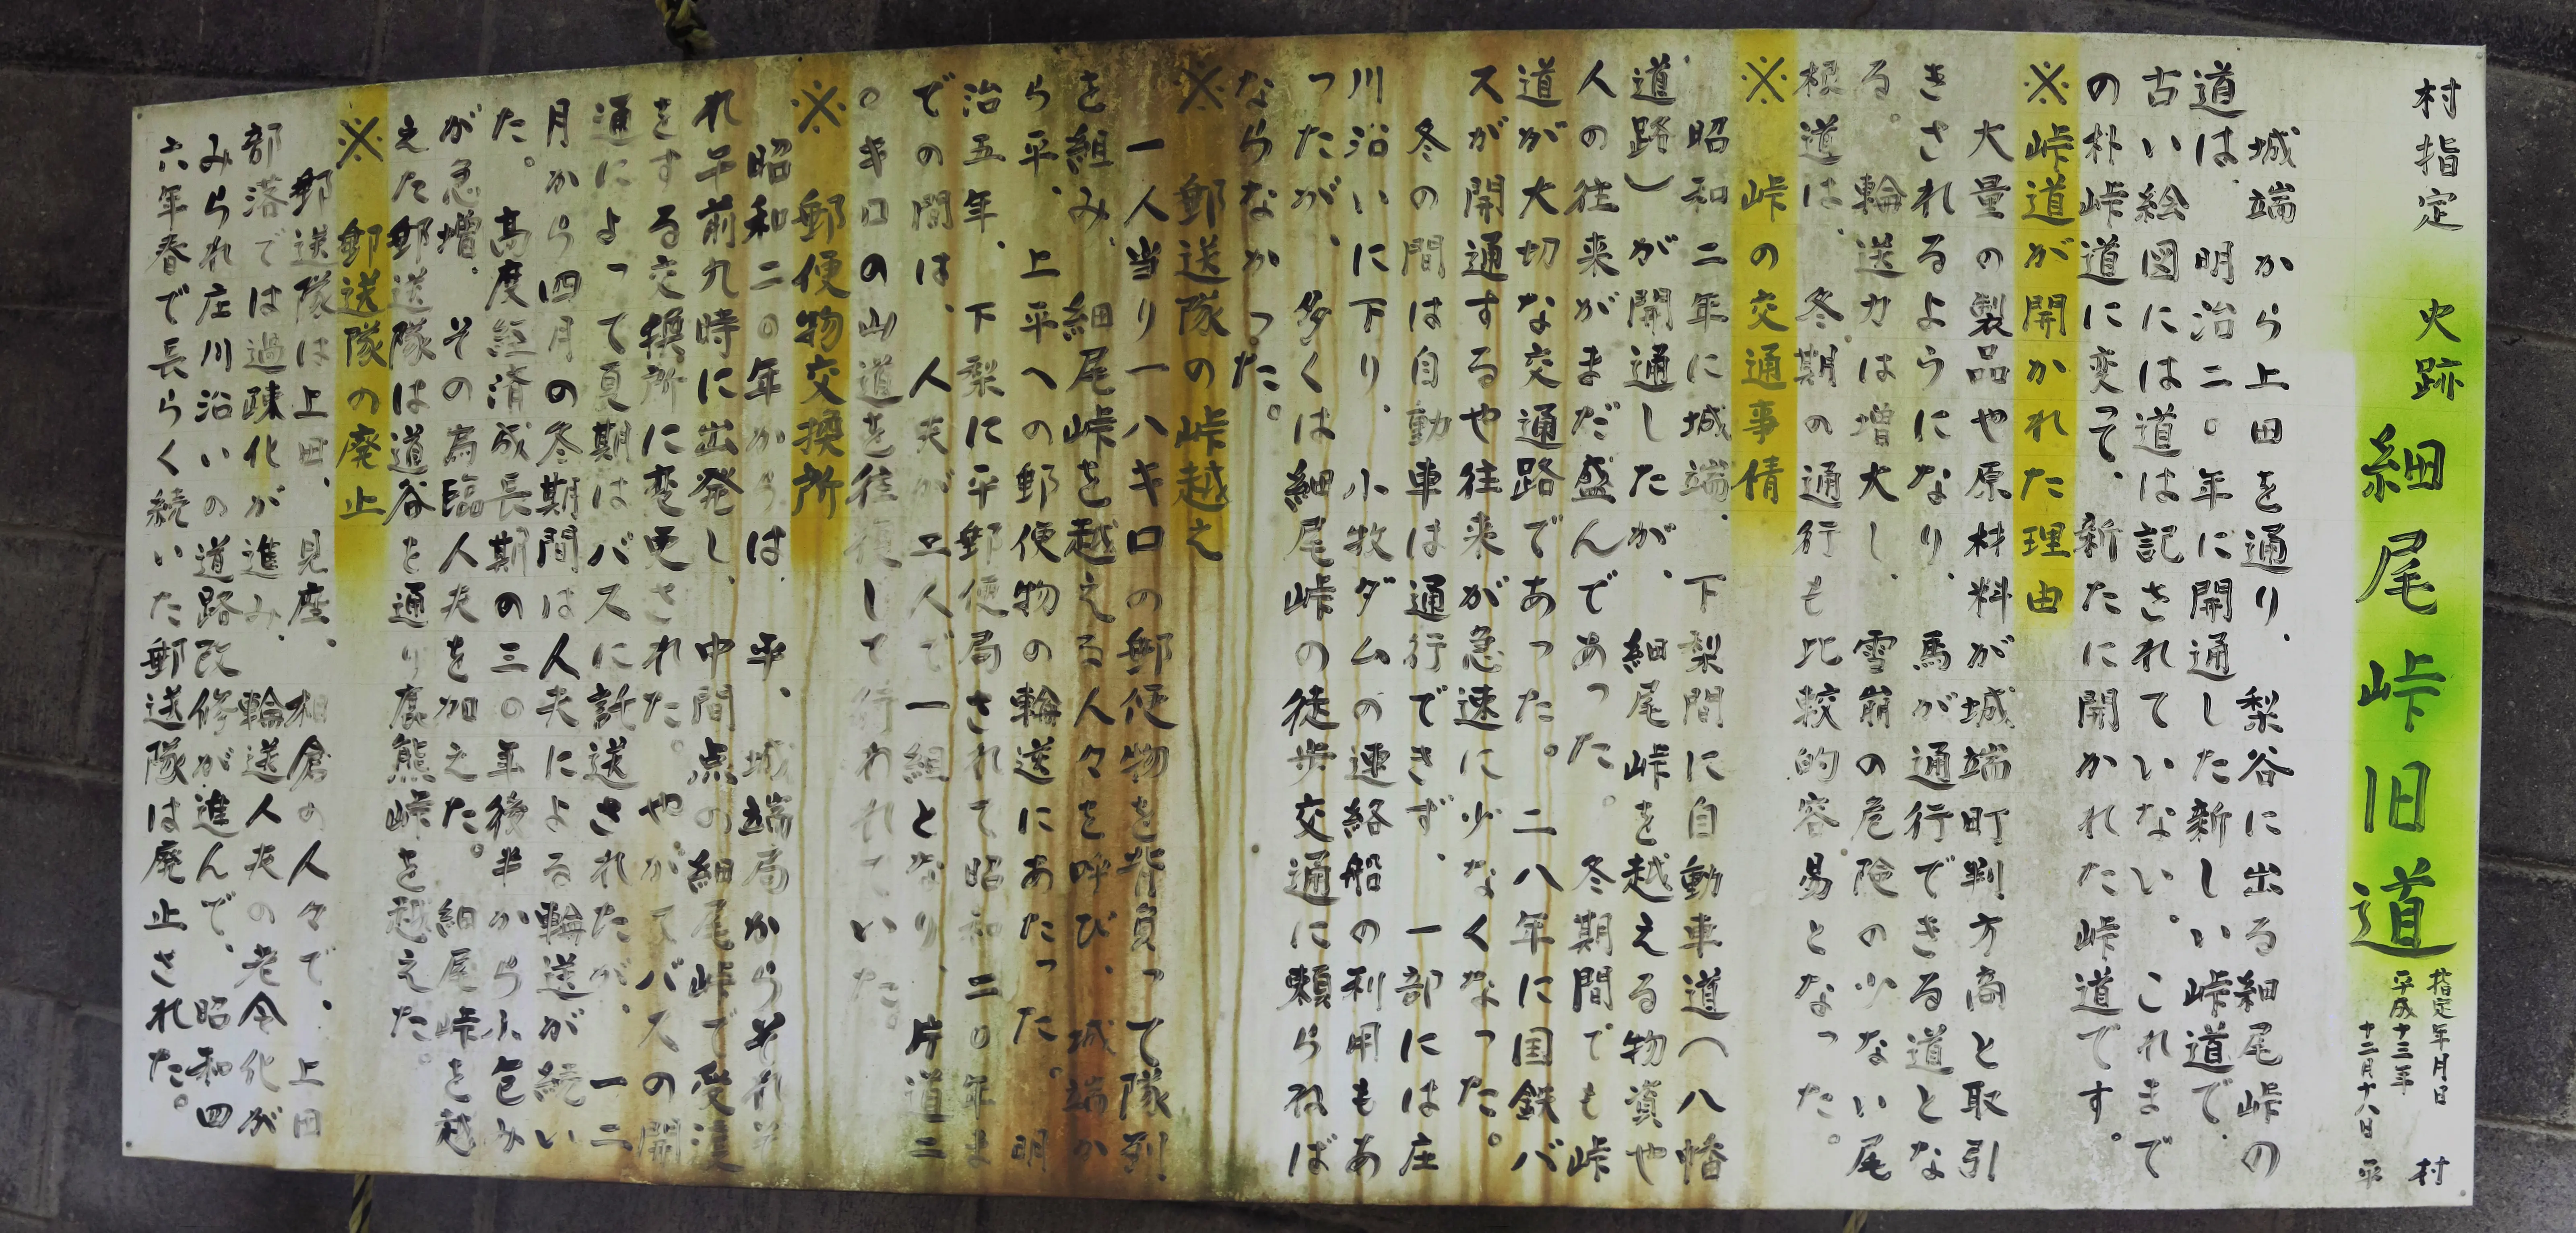 村指定 史跡 細尾峠旧道
指定年月日
平成十三年
十二月十八日
平村
城端から上田を通り、梨谷に出る細尾峠の
道は、明治二〇年に開通した新しい峠道で、
古い絵図には道は記されていない。これまで
の朴峠道に変って、新たに開かれた峠道です。
※峠道が開かれた理由
大量の製品や原材料が城端町判方商と取引
きされるようになり、馬が通行できる道とな
る。輪送力は増大し、雪崩の危険の少ない尾
根道は、冬期の通行も比較的容易となった。
※ 峠の交通事情
昭和二年に城端、下梨間に自動車道(八幡
道路)が開通したが、細尾峠を越える物資や
人の往来がまだ盛んであった。冬期間でも峠
道が大切な交通路であった。二八年に国鉄バ
スが開通するや往来が急速に少なくなった。
冬の間は自動車は通行できず、一部には庄
川沿いに下り、小牧ダムの連絡船の利用もあ
ったが、多くは細尾峠の徒歩交通に頼らねば
ならなかった。
※ 郵送隊の峠越え
一人当り一八キロの郵便物を背負って隊列
を組み、細尾峠を越える人々を呼び、城端か
ら平、上平への郵便物の輪送にあたった。明
治五年、下梨に平郵便局されて昭和二〇年ま
での間は、人夫が二人で一組となり、片道二
〇キロの山道を往復して行われていた。
※ 郵便物交換所
昭和二〇年からは、平、城端局からそれぞ
れ午前九時に出発し、中間点の細尾峠で受渡
をする交換所に変更された。やがてバスの開
通によって夏期はバスに託送されたが、一二
月から四月の冬期間は人夫による輪送が続い
た。高度経済成長期の三〇年後半から小包み
が急増、その為臨人夫を加えた。細尾峠を越
えた郵送隊は道谷を通り鹿熊峠を越えた。
※ 郵送隊の廃止
郵送隊は上田、見座、相倉の人々で、上田
部落では過疎化が進み、輪送人夫の老令化が
みられ庄川沿いの道路改修が進んで、昭和四
六年春で長らく続いた郵送隊は廃止された。